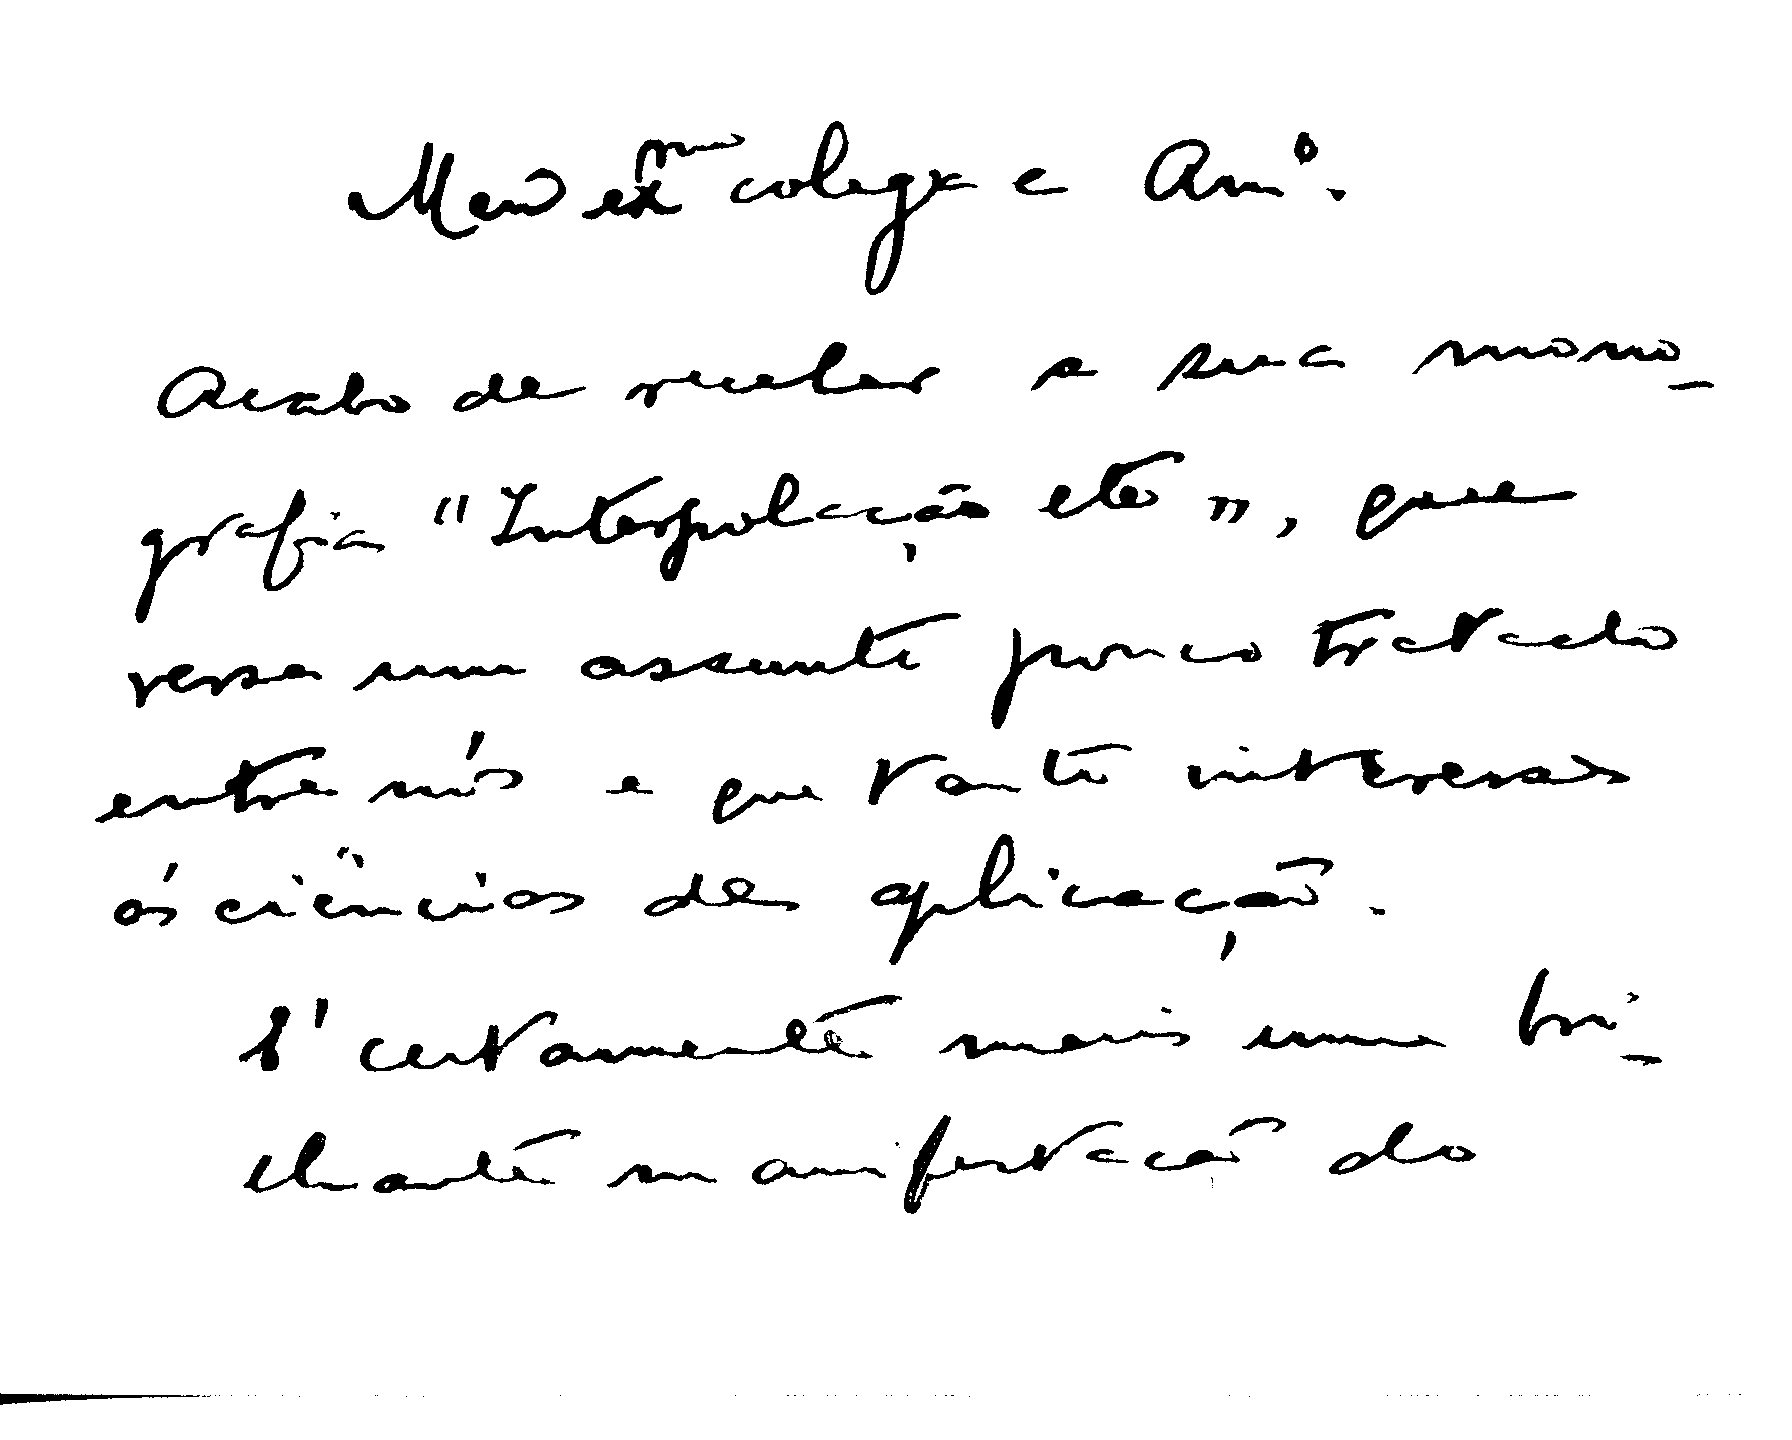 Meu ex.mo colega e Am.º
Acabo de receber a sua mono_
grafia "Interpolação etc", que
versa um assunto pouco tratado
entre nós e que tanto interessa
ás ciências de aplicação.
É certamente mais uma bri_
lhante manifestação do